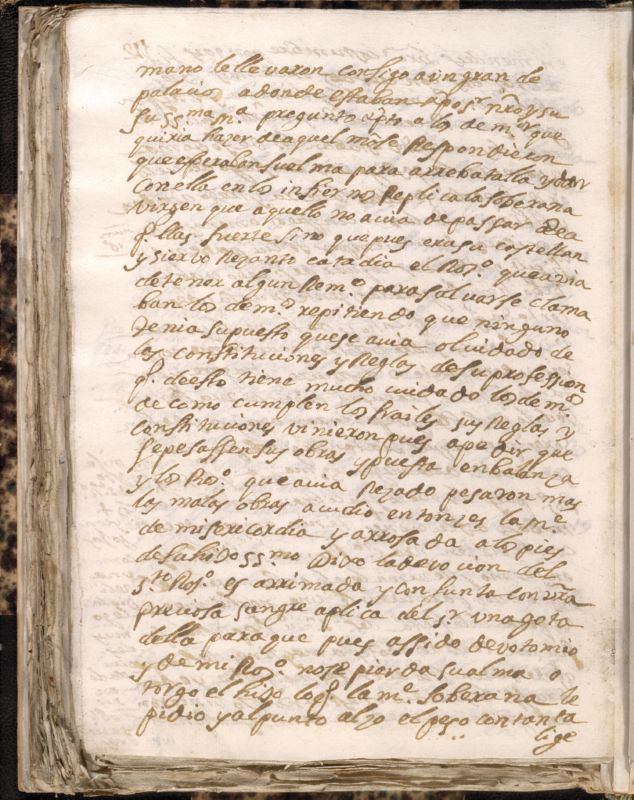 mano le llevaron consigo a un gran de
palacio adonde estaban xpo sr nro y su
ssma me pregunto xpto a los demos que
quiria hazer de aquel mose Respondieron
que esperaban su alma para arrebatalla y dar
con ella en los infiernos Replica la soberana
Virgen que aquello no avia de passar de a
qllas suerte sino que pues era su capellan
y siervo Rezanto cada dia el Roso que avia
de tener algun Remo para salvarse clama
ban los demos repitiendo que ninguno
tenia supuesto que se avia olvidado de
las constituciones y Reglas de su profession
q de esto tiene mucho cuidado los demos
de como cumplen los frailes sus Reglas y
constituciones vinieron pues a pedir que
se pesassen sus obras y puesta en balanza
y los Roso que avia Rezado pesaron mas
las malas obras acudio entonzes la me
de misericordia y arrosada a los pies
de su hijo ssmo Dijo la devocion del
sto Roso es arrimada y con junta con vra
preciosa sangre aplica del sr una gota
della para que pues a sido devoto mio
y de mi Roso no se pierda su alma o
torgo el hijo lo q la me soberana le
pidio y al punto alzo el peso con tanta
lige